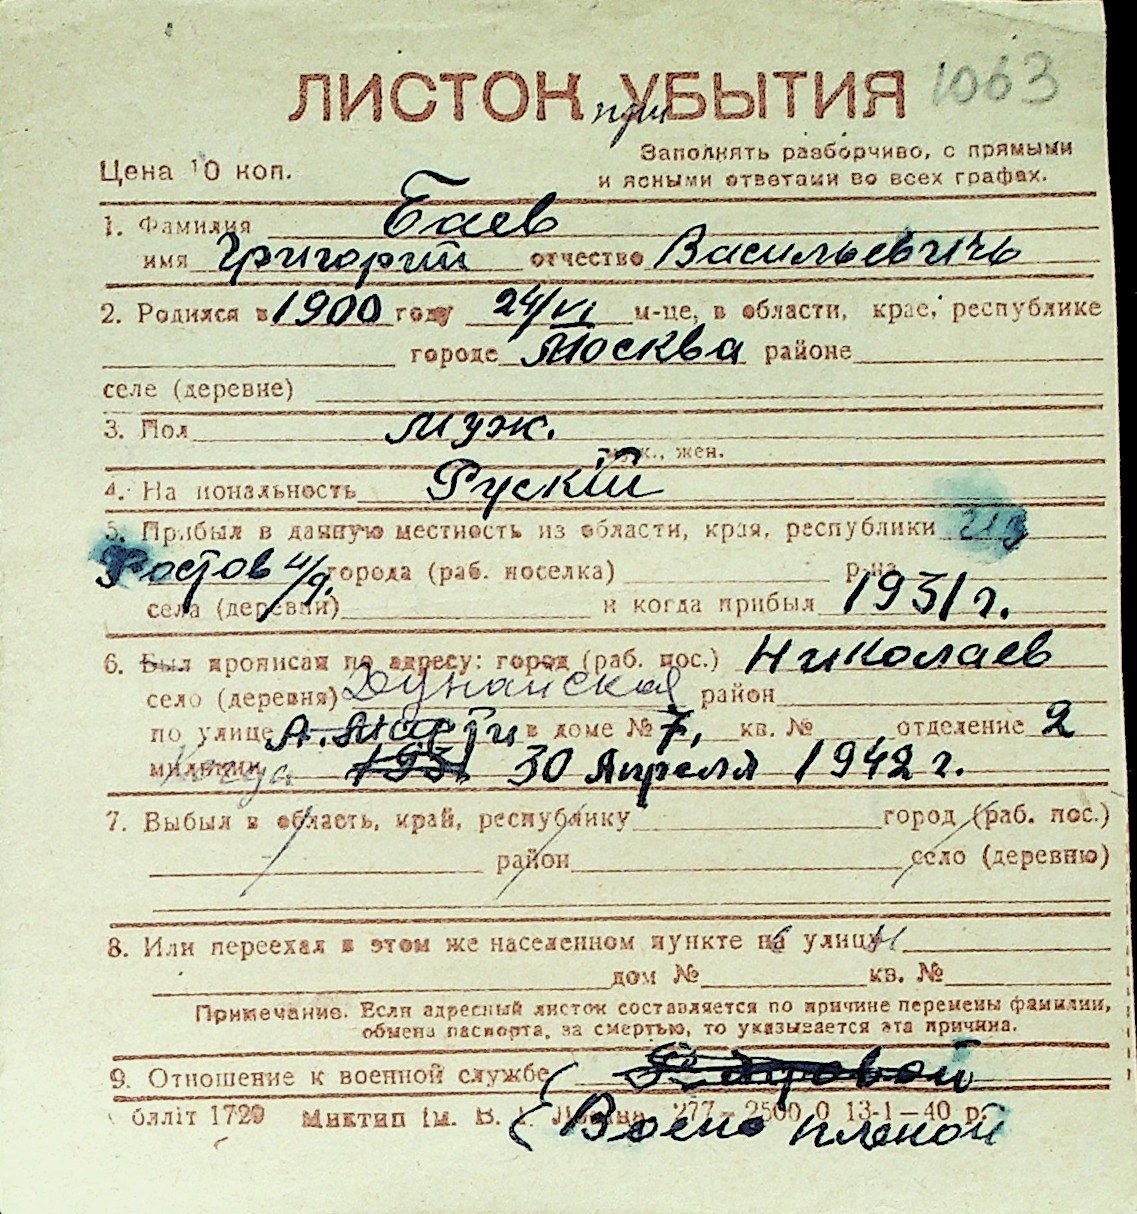 ЛИСТОК при УБЫТИЯ 1063
Цена 10 коп.
Заполнять разборчиво, с прямыми
и ясными ответами во всех графах.
1. Фамилия Баев
имя Григорий отчество Васильевичь
2. Родился в 1900 году 24/VI м-це, в области, крае, республике
городе Москва районе
селе (деревне)
3. Пол муж.
муж., жен.
4. На иональность Рускій
5. Прибыл в данную местность из области, края, республики из
Ростов н/Д. города (раб. поселка) р-на
села (деревни) и когда прибыл 1931 г.
6. Был прописан по адресу: город (раб. пос.) Николаев
село (деревня) Дунайская район
по улице А. Марти в доме № 7, кв. № отделение 2
милиции 1931 30 Апреля 1942 г.
7. Выбыл в область, край, республику город (раб. пос.)
район село (деревню)
8. Или переехал в этом же населенном пункте на улицу
дом № кв. №
Примечание. Если адресный листок составляется по причине перемены фамилии,
обмена паспорта, за смертью, то указывается эта причина.
9. Отношение к военной службе
Воено пленой
бліт 1729 Миктип ім. В. 277–2500 0 13-1–40 р.